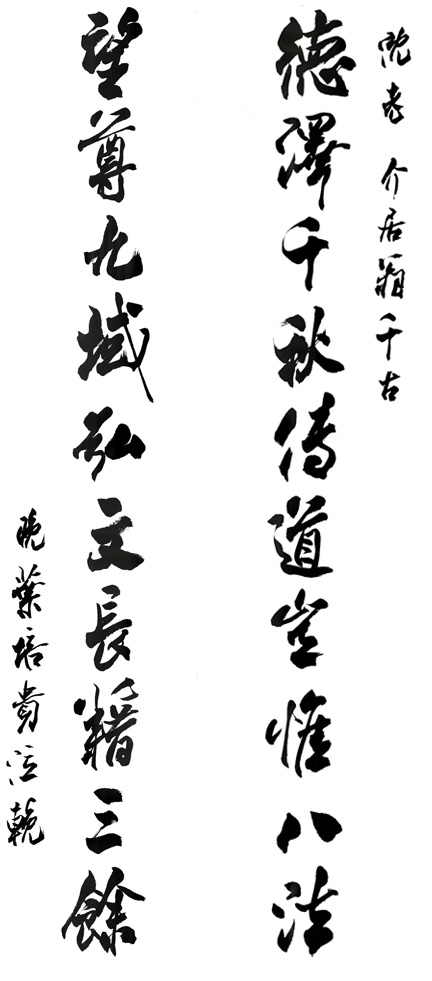 沈老介居翁千古
德澤千秋傳道豈惟八法
望尊九域弘文長藉三餘
晚葉培貴泣輓